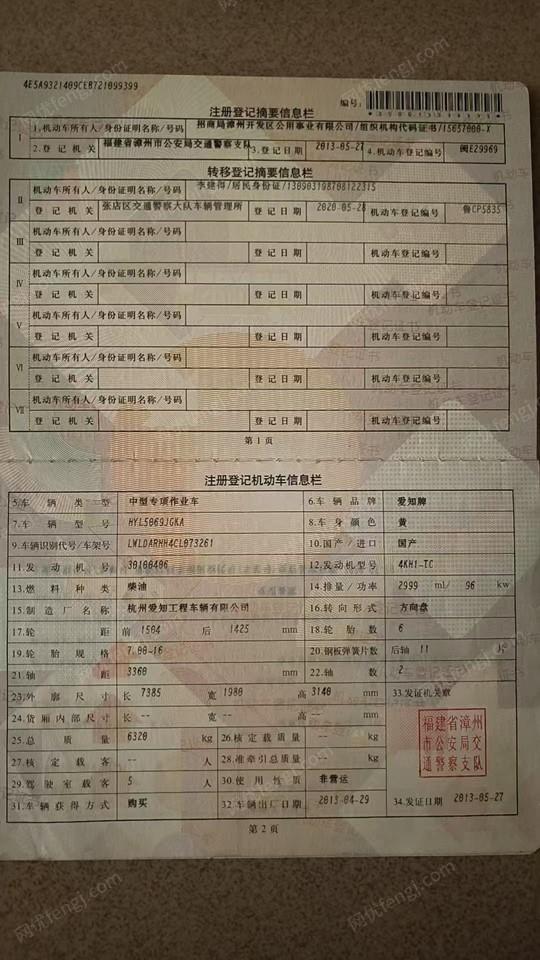 4E5A9321409CEB721099399
编号:
注册登记摘要信息栏
I 1.机动车所有人/身份证明名称/号码 州商局漳州开发区公用事业有限公司/组织机构代码证书/15657000-X
2.登记机关 福建省漳州市公安局交通警察支队 3.登记日期 2013-05-27 4.机动车登记编号 闽E29969
转移登记摘要信息栏
II 机动车所有人/身份证明名称/号码 李建得/居民身份证/130903198708122315
登记机关 张店区交通警察大队车辆管理所 登记日期 2020-05-28 机动车登记编号 鲁CP5835
III 机动车所有人/身份证明名称/号码
登记机关 登记日期 机动车登记编号
IV 机动车所有人/身份证明名称/号码
登记机关 登记日期 机动车登记编号
V 机动车所有人/身份证明名称/号码
登记机关 登记日期 机动车登记编号
VI 机动车所有人/身份证明名称/号码
登记机关 登记日期 机动车登记编号
VII 机动车所有人/身份证明名称/号码
登记机关 登记日期 机动车登记编号
第1页
注册登记机动车信息栏
5.车辆类型 中型专项作业车 6.车辆品牌 爱知牌
7.车辆型号 HYL5069JGKA 8.车身颜色 黄
9.车辆识别代号/车架号 LWLDARHH4CL073261 10.国产/进口 国产
11.发动机号 30100406 12.发动机型号 4KH1-TC
13.燃料种类 柴油 14.排量/功率 2999 ml/ 96 kw
15.制造厂名称 杭州爱知工程车辆有限公司 16.转向形式 方向盘
17.轮距 前 1504 后 1425 mm 18.轮胎数 6
19.轮胎规格 7.00-16 20.钢板弹簧片数 后轴 11 片
21.轴距 3360 mm 22.轴数 2
23.外廓尺寸 长 7385 宽 1980 高 3140 mm 33.发证机关章
24.货厢内部尺寸 长 -- 宽 -- 高 -- mm
25.总质量 6320 kg 26.核定载质量 -- kg
27.核定载客 -- 人 28.准牵引总质量 -- kg
福建省漳州
市公安局交
通警察支队
29.驾驶室载客 5 人 30.使用性质 非营运
31.车辆获得方式 购买 32.车辆出厂日期 2013-04-29 34.发证日期 2013-05-27
第2页